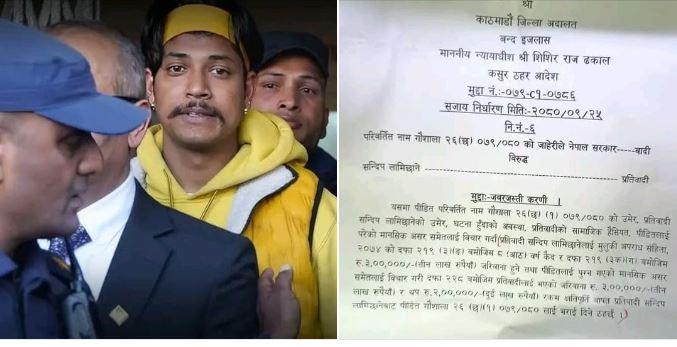 श्री
काठमाडौं जिल्ला अदालत
बन्द इजलास
माननीय न्यायाधीश श्री शिशिर राज ढकाल
कसुर ठहर आदेश
मुद्दा नं.:-०७९-C१-०७८६
सजाय निर्धारण मिति:-२०८०/०९/२५
नि.नं.-६
परिवर्तित नाम गौशाला २६(छ) ०७९/०८० को जाहेरीले नेपाल सरकार-----वादी
विरुद्ध
सन्दिप लामिछाने ---------- प्रतिवादी
मुद्दाः-जबरजस्ती करणी ।
यसमा पीडित परिवर्तित नाम गौशाला २६(छ) (१) ०७९/०८० को उमेर, प्रतिवादी
सन्दिप लामिछानेको उमेर, घटना हुँदाको अवस्था, प्रतिवादीको सामाजिक हैसियत, पीडितलाई
परेको मानसिक असर समेतलाई बिचार गर्दा प्रतिवादी सन्दिप लामिछानेलाई मुलुकी अपराध संहिता,
२०७४ को दफा २१९ (३)(ड) बमोजिम ८ (आठ) वर्ष कैद र दफा २१९ (३)(ग) बमोजिम
रु.३,००,०००/-(तीन लाख रुपैयाँ) जरिवाना हुने तथा पीडितलाई पुग्न गएको मानसिक असर
समेतलाई बिचार गरी दफा २२८ बमोजिम प्रतिवादीलाई भएको जरिवाना रु. ३,००,०००/-(तीन
लाख रुपैयाँ) र थप रु.२,००,०००/-(दुई लाख रुपैयाँ) रकम क्षतिपूर्ति वापत प्रतिवादी सन्दिप
लामिछानेबाट पीडित गौशाला २६ (छ)(१) ०७९/०८० लाई भराई दिने ठहर्छ ।